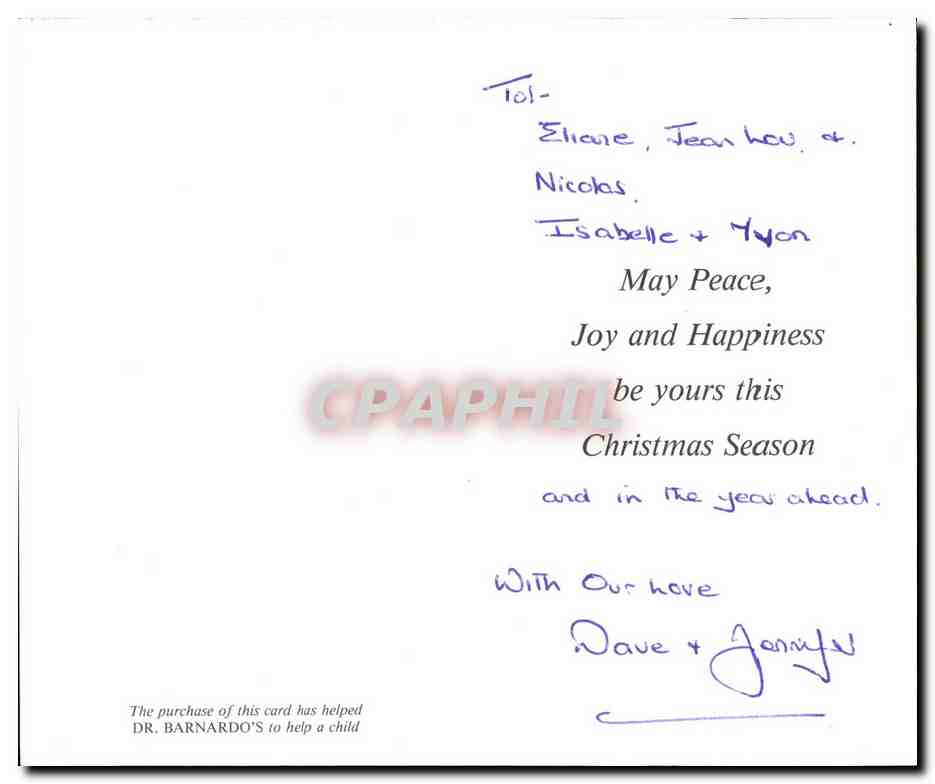 To:-
Eliane, Jean Lou. &.
Nicolas.
Isabelle + Yvon
May Peace,
Joy and Happiness
be yours this
Christmas Season
and in the year ahead.
With Our Love
Dave + Jennifer
The purchase of this card has helped
DR. BARNARDO'S to help a child
CPAPHIL